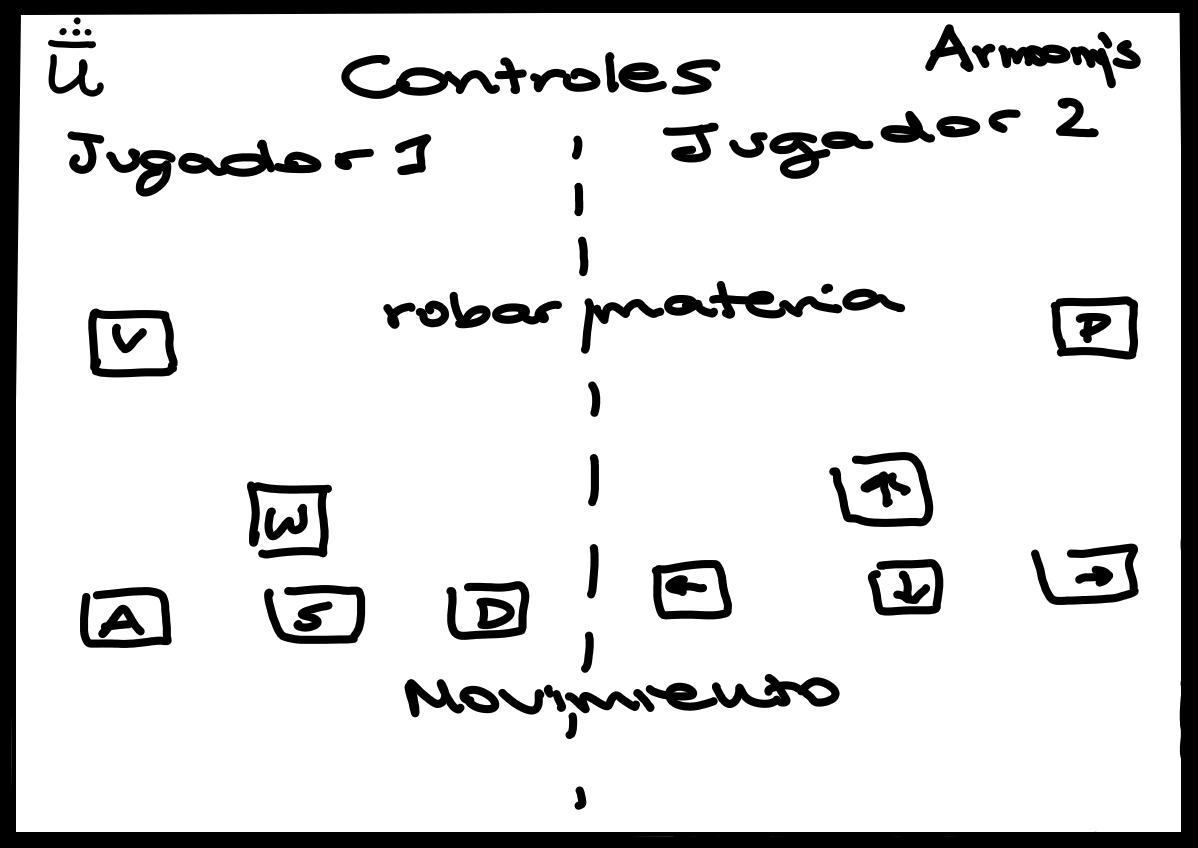 Controles
Jugador 1
Jugador 2
robar materia
V
P
W
↑
A
S
D
←
↓
→
Movimiento